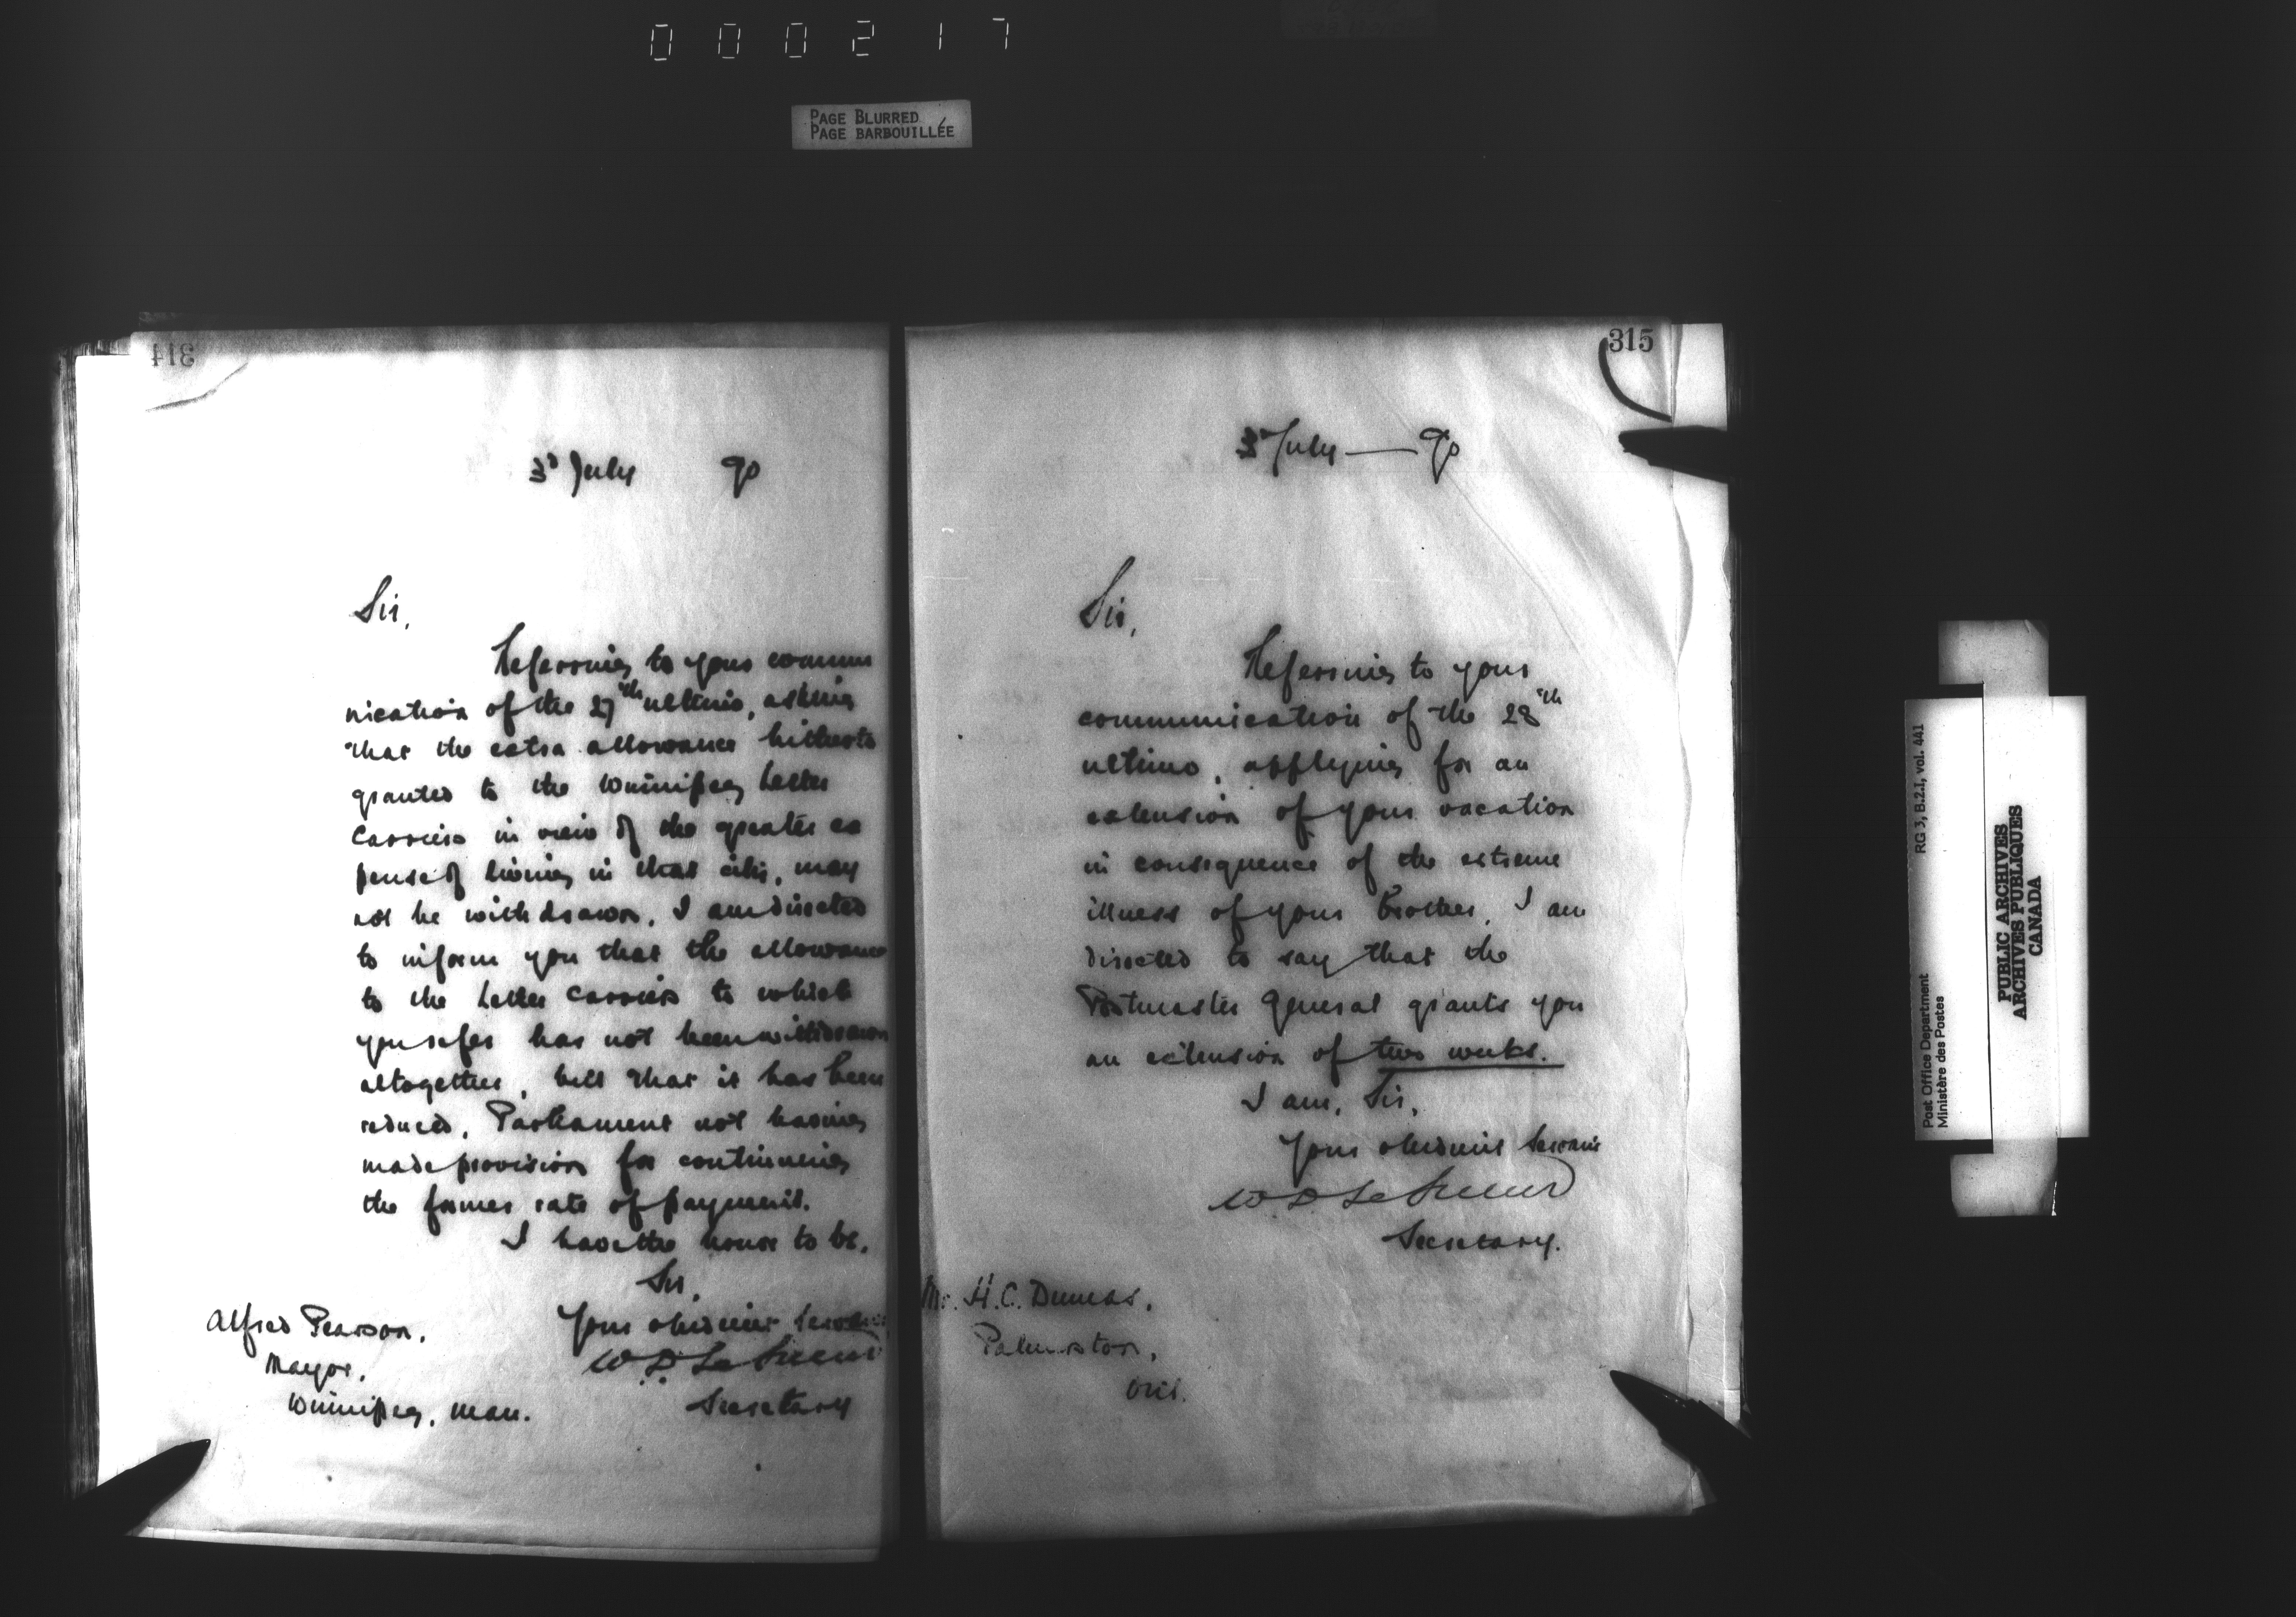 000217
PAGE BLURRED
PAGE BARBOUILLÉE
314
3d July 90
Sir,
Referring to your commu
nication of the 27th ultimo, asking
that the extra allowance hitherto
granted to the Winnipeg Letter
Carriers in view of the greater ex
pense of living in that city, may
not be withdrawn, I am directed
to inform you that the allowance
to the Letter Carriers to which
you refer has not been withdrawn
altogether, but that it has been
reduced, Parliament not having
made provision for continuing
the former rate of payment.
I have the honor to be,
Sir,
Your obedient Servant
W D LeSueur
Secretary
Alfred Pearson,
Mayor,
Winnipeg, Man.
315
3d July — 90
Sir,
Referring to your
communication of the 28th
ultimo, applying for an
extension of your vacation
in consequence of the extreme
illness of your brother, I am
directed to say that the
Postmaster General grants you
an extension of two weeks.
I am, Sir,
Your obedient Servant
W. D. LeSueur
Secretary.
Mr. H. C. Dumas,
Palmerston,
Ont.
Post Office Department RG 3, B.2.I, vol. 441
Ministère des Postes
PUBLIC ARCHIVES
ARCHIVES PUBLIQUES
CANADA